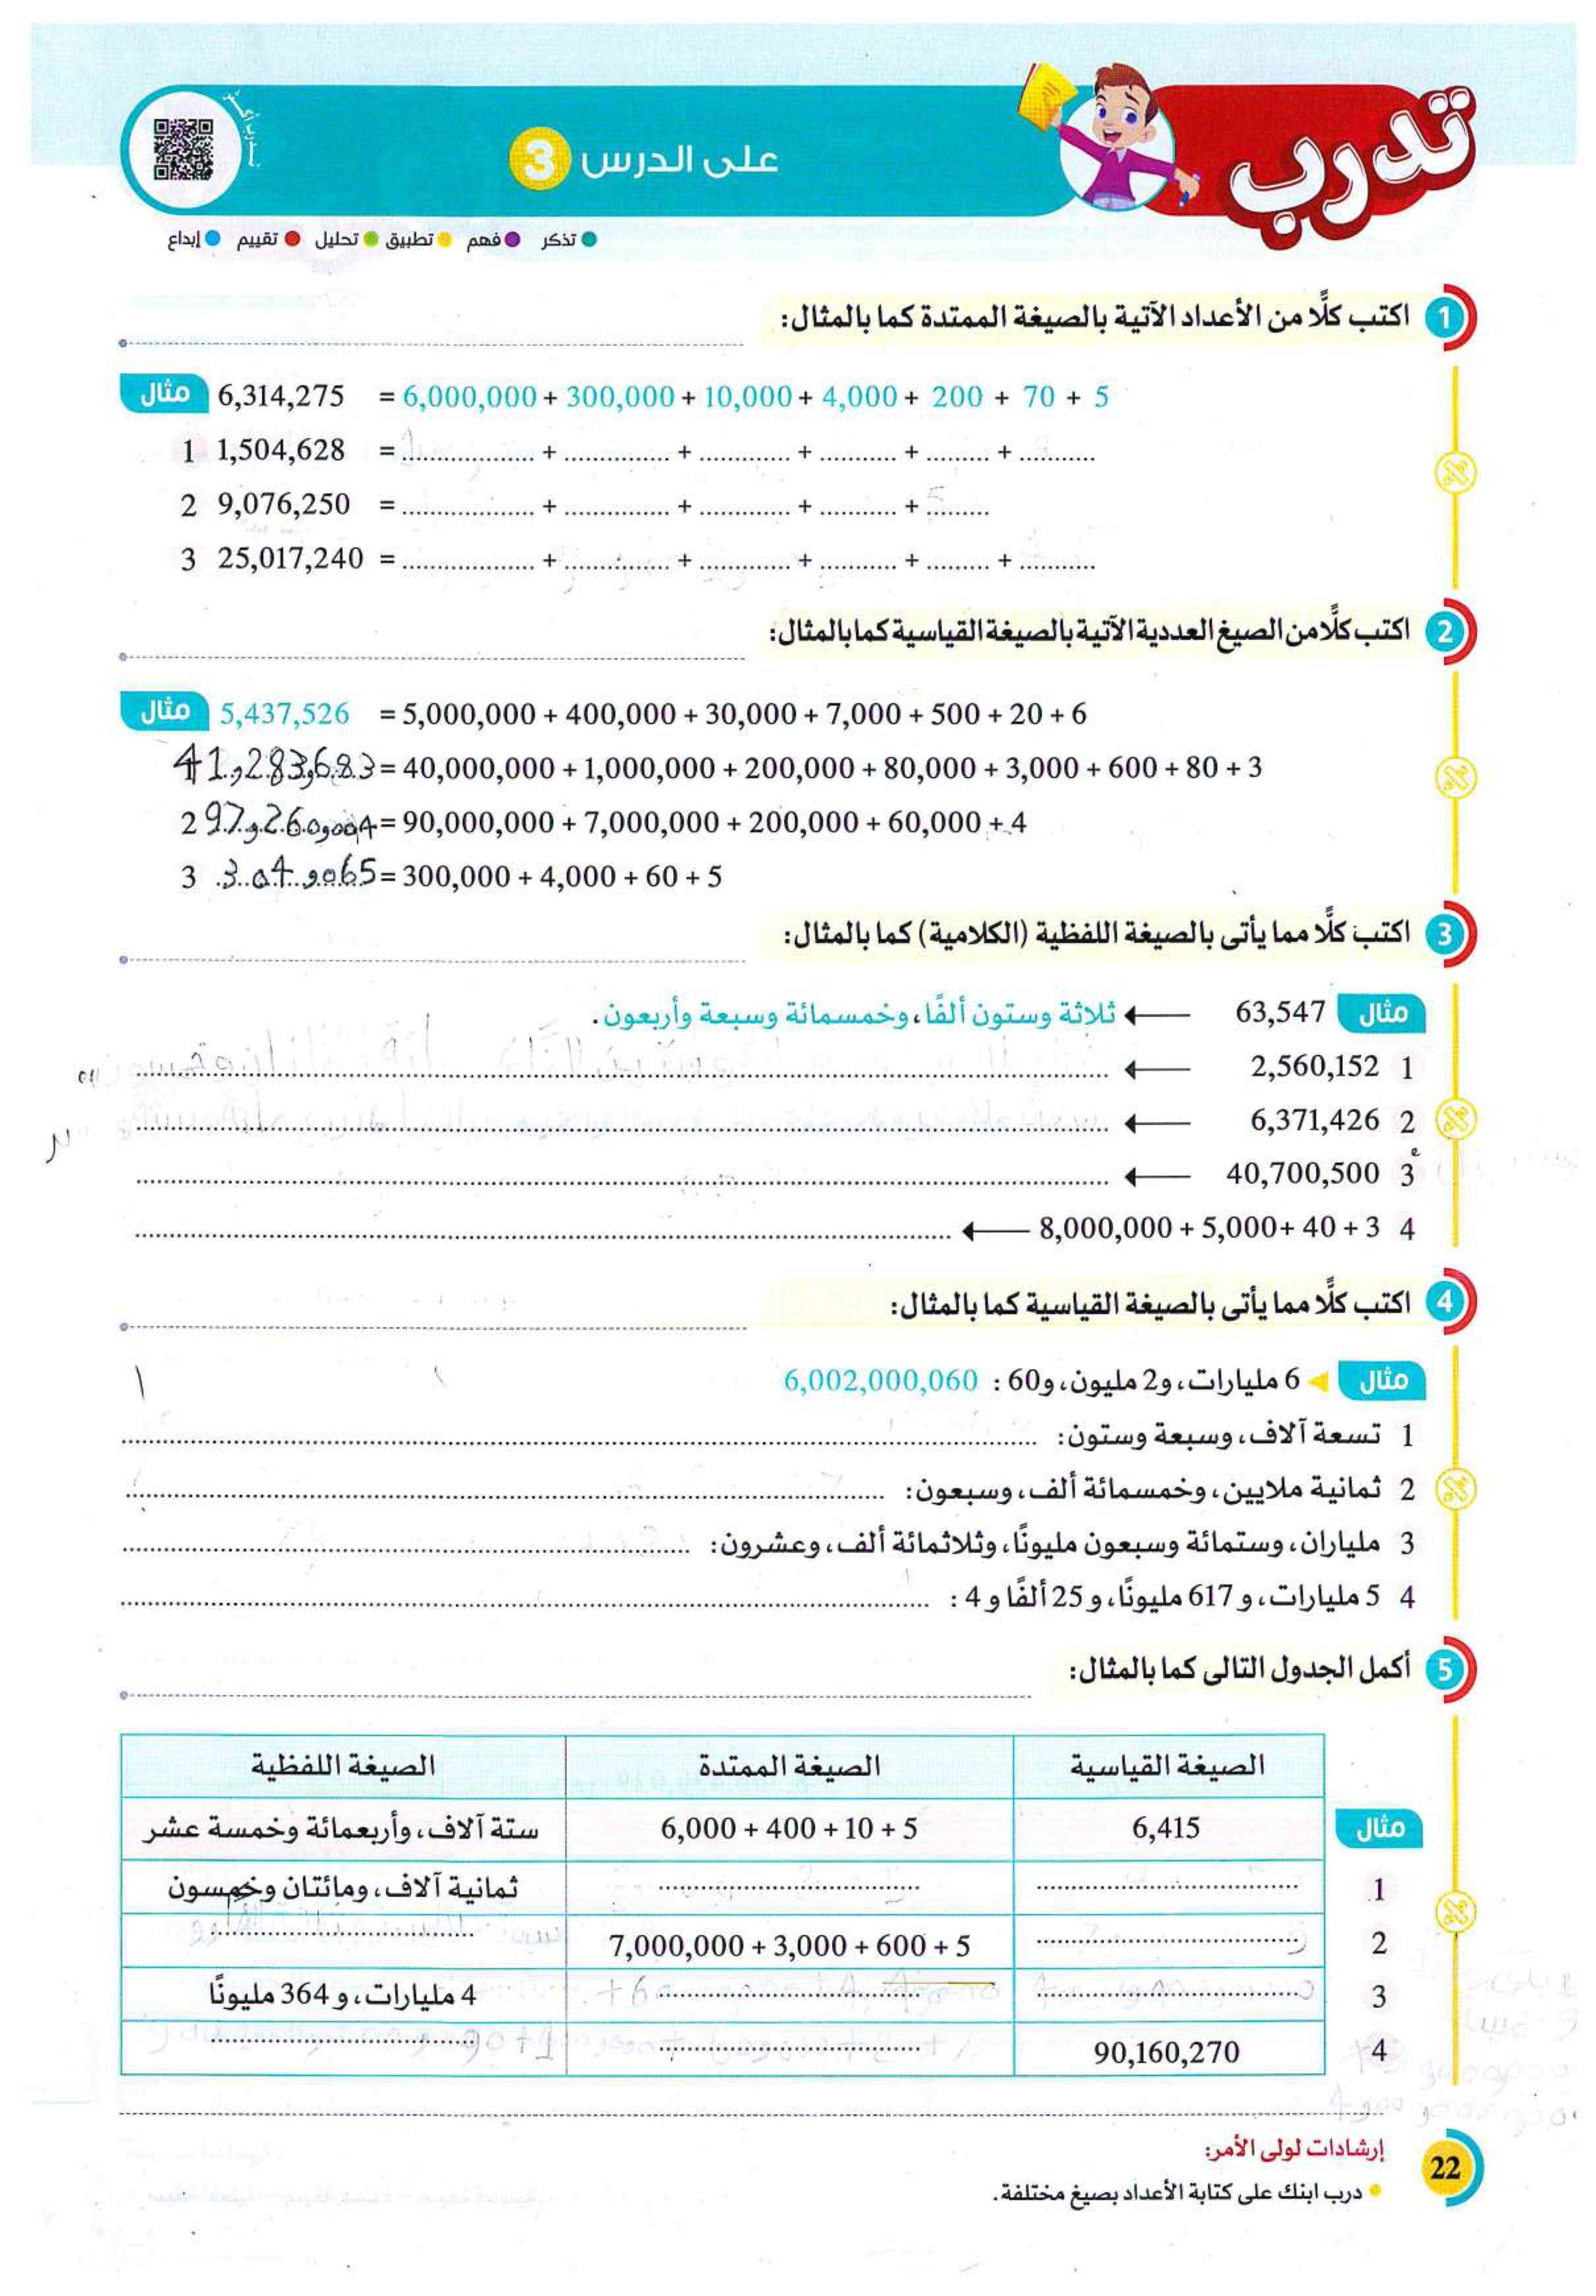 تدرب
على الدرس 3
تدرب أكثر
تذكر فهم تطبيق تحليل تقييم إبداع
1 اكتب كلًّا من الأعداد الآتية بالصيغة الممتدة كما بالمثال:
مثال 6,314,275 = 6,000,000 + 300,000 + 10,000 + 4,000 + 200 + 70 + 5
1 1,504,628 = ........ + ........ + ........ + ........ + ........ + ........
2 9,076,250 = ........ + ........ + ........ + ........ + ........
3 25,017,240 = ........ + ........ + ........ + ........ + ........ + ........
2 اكتب كلًّا من الصيغ العددية الآتية بالصيغة القياسية كما بالمثال:
مثال 5,437,526 = 5,000,000 + 400,000 + 30,000 + 7,000 + 500 + 20 + 6
41,283,683 = 40,000,000 + 1,000,000 + 200,000 + 80,000 + 3,000 + 600 + 80 + 3
2 97,260,004 = 90,000,000 + 7,000,000 + 200,000 + 60,000 + 4
3 304,065 = 300,000 + 4,000 + 60 + 5
3 اكتب كلًّا مما يأتى بالصيغة اللفظية (الكلامية) كما بالمثال:
مثال 63,547 ← ثلاثة وستون ألفًا، وخمسمائة وسبعة وأربعون.
1 2,560,152 ← ........
2 6,371,426 ← ........
3 40,700,500 ← ........
4 8,000,000 + 5,000+ 40 + 3 ← ........
4 اكتب كلًّا مما يأتى بالصيغة القياسية كما بالمثال:
مثال 6 مليارات، و2 مليون، و60 : 6,002,000,060
1 تسعة آلاف، وسبعة وستون: ........
2 ثمانية ملايين، وخمسمائة ألف، وسبعون: ........
3 ملياران، وستمائة وسبعون مليونًا، وثلاثمائة ألف، وعشرون: ........
4 5 مليارات، و 617 مليونًا، و 25 ألفًا و 4 : ........
5 أكمل الجدول التالى كما بالمثال:
الصيغة القياسية الصيغة الممتدة الصيغة اللفظية
مثال 6,415 6,000 + 400 + 10 + 5 ستة آلاف، وأربعمائة وخمسة عشر
1 ........ ........ ثمانية آلاف، ومائتان وخمسون
2 ........ 7,000,000 + 3,000 + 600 + 5 ........
3 ........ ........ 4 مليارات، و 364 مليونًا
4 90,160,270 ........ ........
إرشادات لولى الأمر:
درب ابنك على كتابة الأعداد بصيغ مختلفة.
22